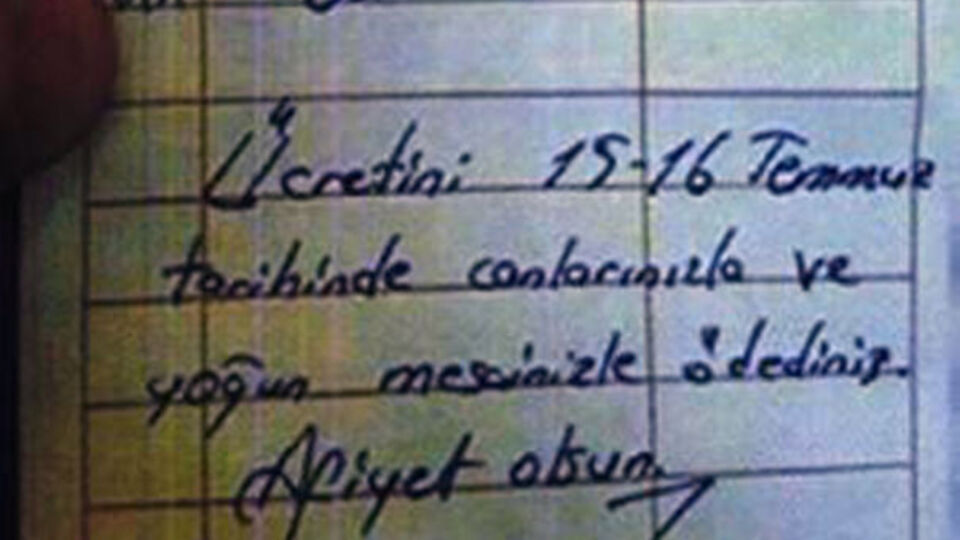 Ücretini 15-16 Temmuz
tarihinde canlarınızla ve
yoğun mesainizle ödediniz.
Afiyet olsun.